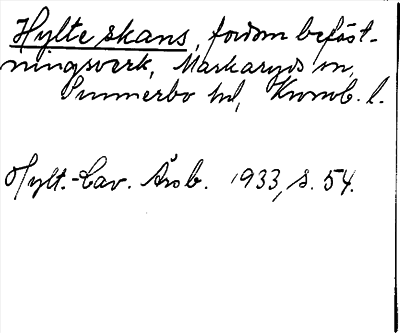 Hylte skans, fordom befäst-
ningsverk, Markaryds sn,
Sunnerbo hd, Kronob. l.
Hylt.-Cav. Årsb. 1933, s. 54.